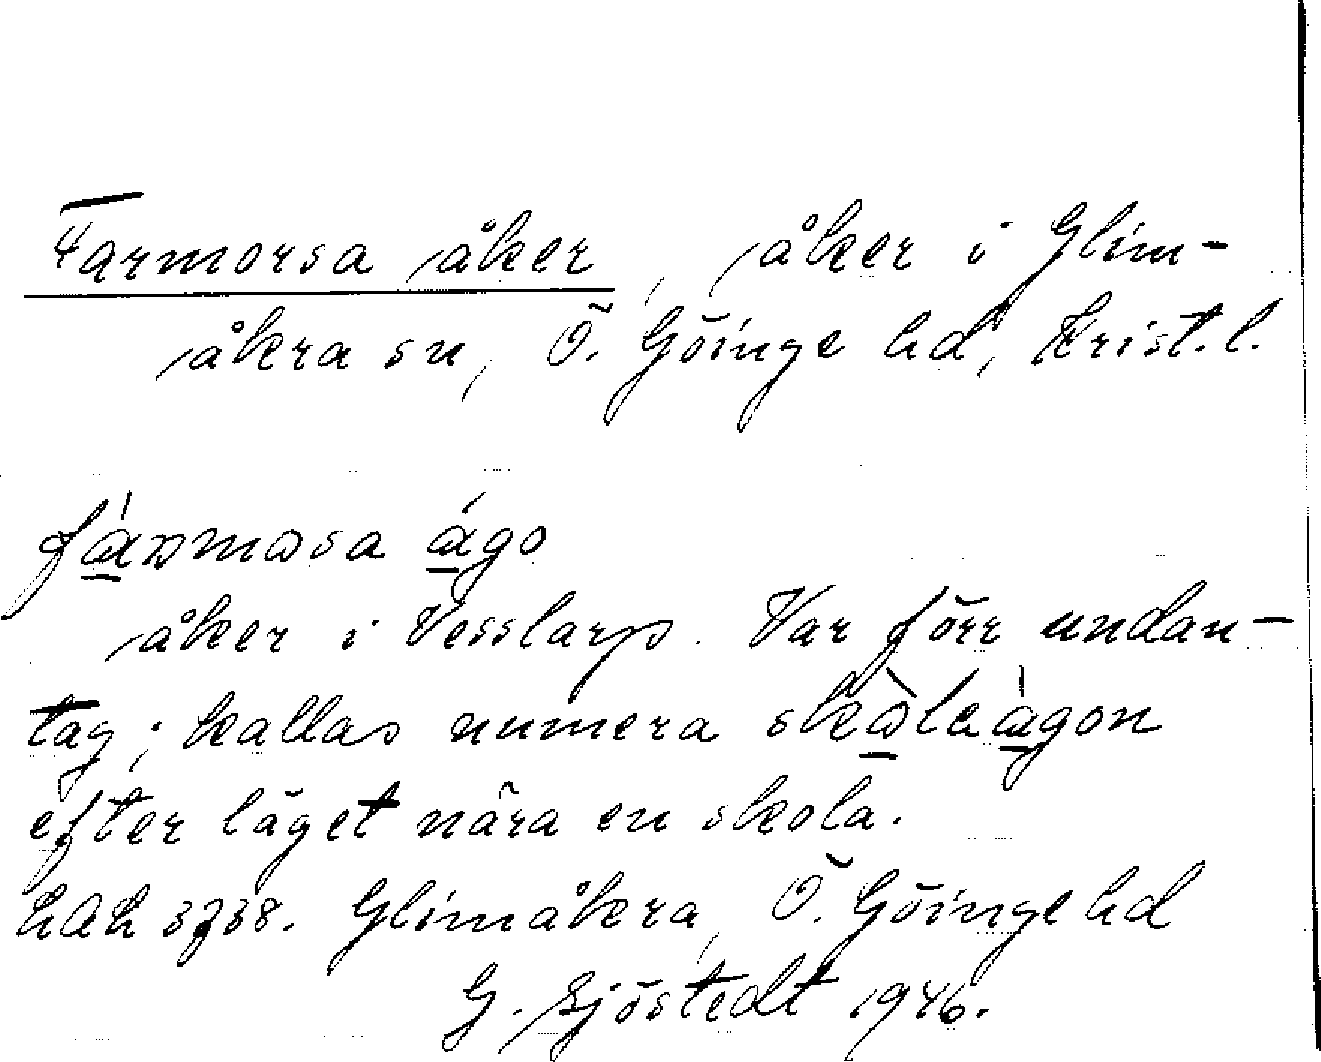 Farmorsa åker, åker i Glim-
åkra sn, Ö. Göinge hd, Krist. l.
åker i Vesslarp. Var förr undan-
tag; kallas numera
efter läget nära en skola.
Glimåkra, Ö. Göinge hd
G. Sjöstedt 1946.